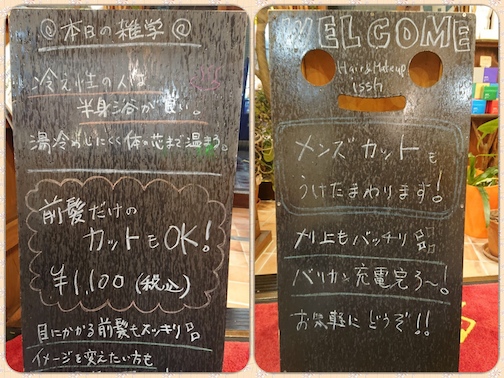 @本日の雑学@
冷え性の人は
半身浴が良い。
湯冷めしにくく体の芯まで温まる。
前髪だけの
カットもOK!
¥1,100(税込)
目にかかる前髪もスッキリ
イメージを変えたい方も
WELCOME
Hair&Makeup
issh
メンズカットも
うけたまわります!
刈上もバッチリ
バリカン充電完了〜!
お気軽にどうぞ!!